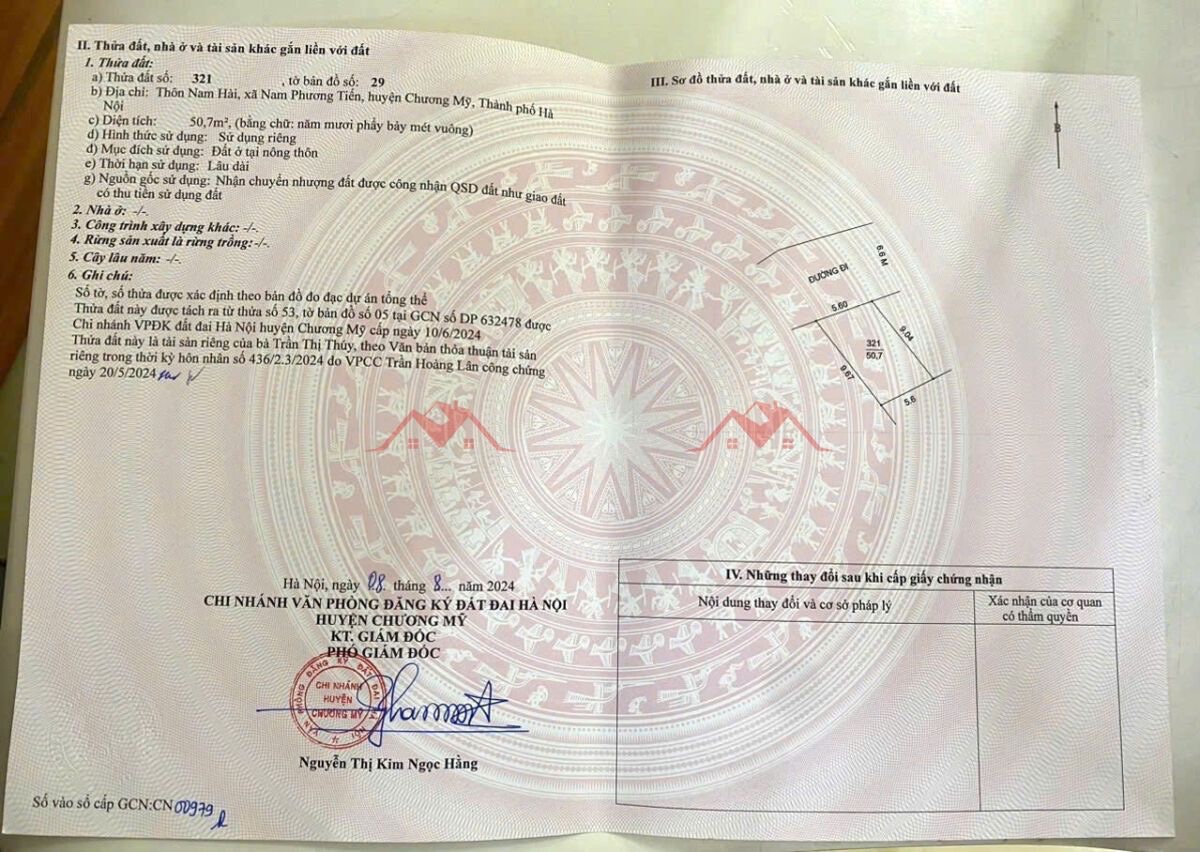 II. Thửa đất, nhà ở và tài sản khác gắn liền với đất
1. Thửa đất:
a) Thửa đất số: 321 , tờ bản đồ số: 29
b) Địa chỉ: Thôn Nam Hài, xã Nam Phương Tiến, huyện Chương Mỹ, Thành phố Hà
Nội
c) Diện tích: 50,7m², (bằng chữ: năm mươi phẩy bảy mét vuông)
d) Hình thức sử dụng: Sử dụng riêng
đ) Mục đích sử dụng: Đất ở tại nông thôn
e) Thời hạn sử dụng: Lâu dài
g) Nguồn gốc sử dụng: Nhận chuyển nhượng đất được công nhận QSD đất như giao đất
có thu tiền sử dụng đất
2. Nhà ở: -/-.
3. Công trình xây dựng khác: -/-.
4. Rừng sản xuất là rừng trồng:-/-.
5. Cây lâu năm: -/-.
6. Ghi chú:
Số tờ, số thửa được xác định theo bản đồ đo đạc dự án tổng thể
Thửa đất này được tách ra từ thửa số 53, tờ bản đồ số 05 tại GCN số DP 632478 được
Chi nhánh VPĐK đất đai Hà Nội huyện Chương Mỹ cấp ngày 10/6/2024
Thửa đất này là tài sản riêng của bà Trần Thị Thúy, theo Văn bản thỏa thuận tài sản
riêng trong thời kỳ hôn nhân số 436/2.3/2024 do VPCC Trần Hoàng Lân công chứng
ngày 20/5/2024
Hà Nội, ngày 08. tháng 8... năm 2024
CHI NHÁNH VĂN PHÒNG ĐĂNG KÝ ĐẤT ĐAI HÀ NỘI
HUYỆN CHƯƠNG MỸ
KT. GIÁM ĐỐC
PHÓ GIÁM ĐỐC
VĂN PHÒNG ĐĂNG KÝ ĐẤT ĐAI HÀ NỘI
CHI NHÁNH
HUYỆN
CHƯƠNG MỸ
Nguyễn Thị Kim Ngọc Hằng
Số vào sổ cấp GCN:CN 00979
III. Sơ đồ thửa đất, nhà ở và tài sản khác gắn liền với đất
B
6.6 M
ĐƯỜNG ĐI
5.60
9.04
321
50,7
9.67
5.6
IV. Những thay đổi sau khi cấp giấy chứng nhận
Nội dung thay đổi và cơ sở pháp lý
Xác nhận của cơ quan
có thẩm quyền